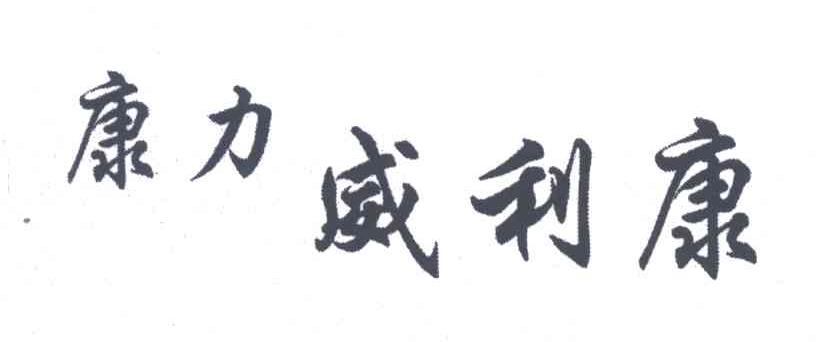 康力
威利康